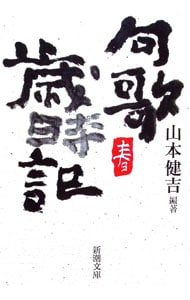 句歌
歳時記
春
山本健吉
編著
新潮文庫